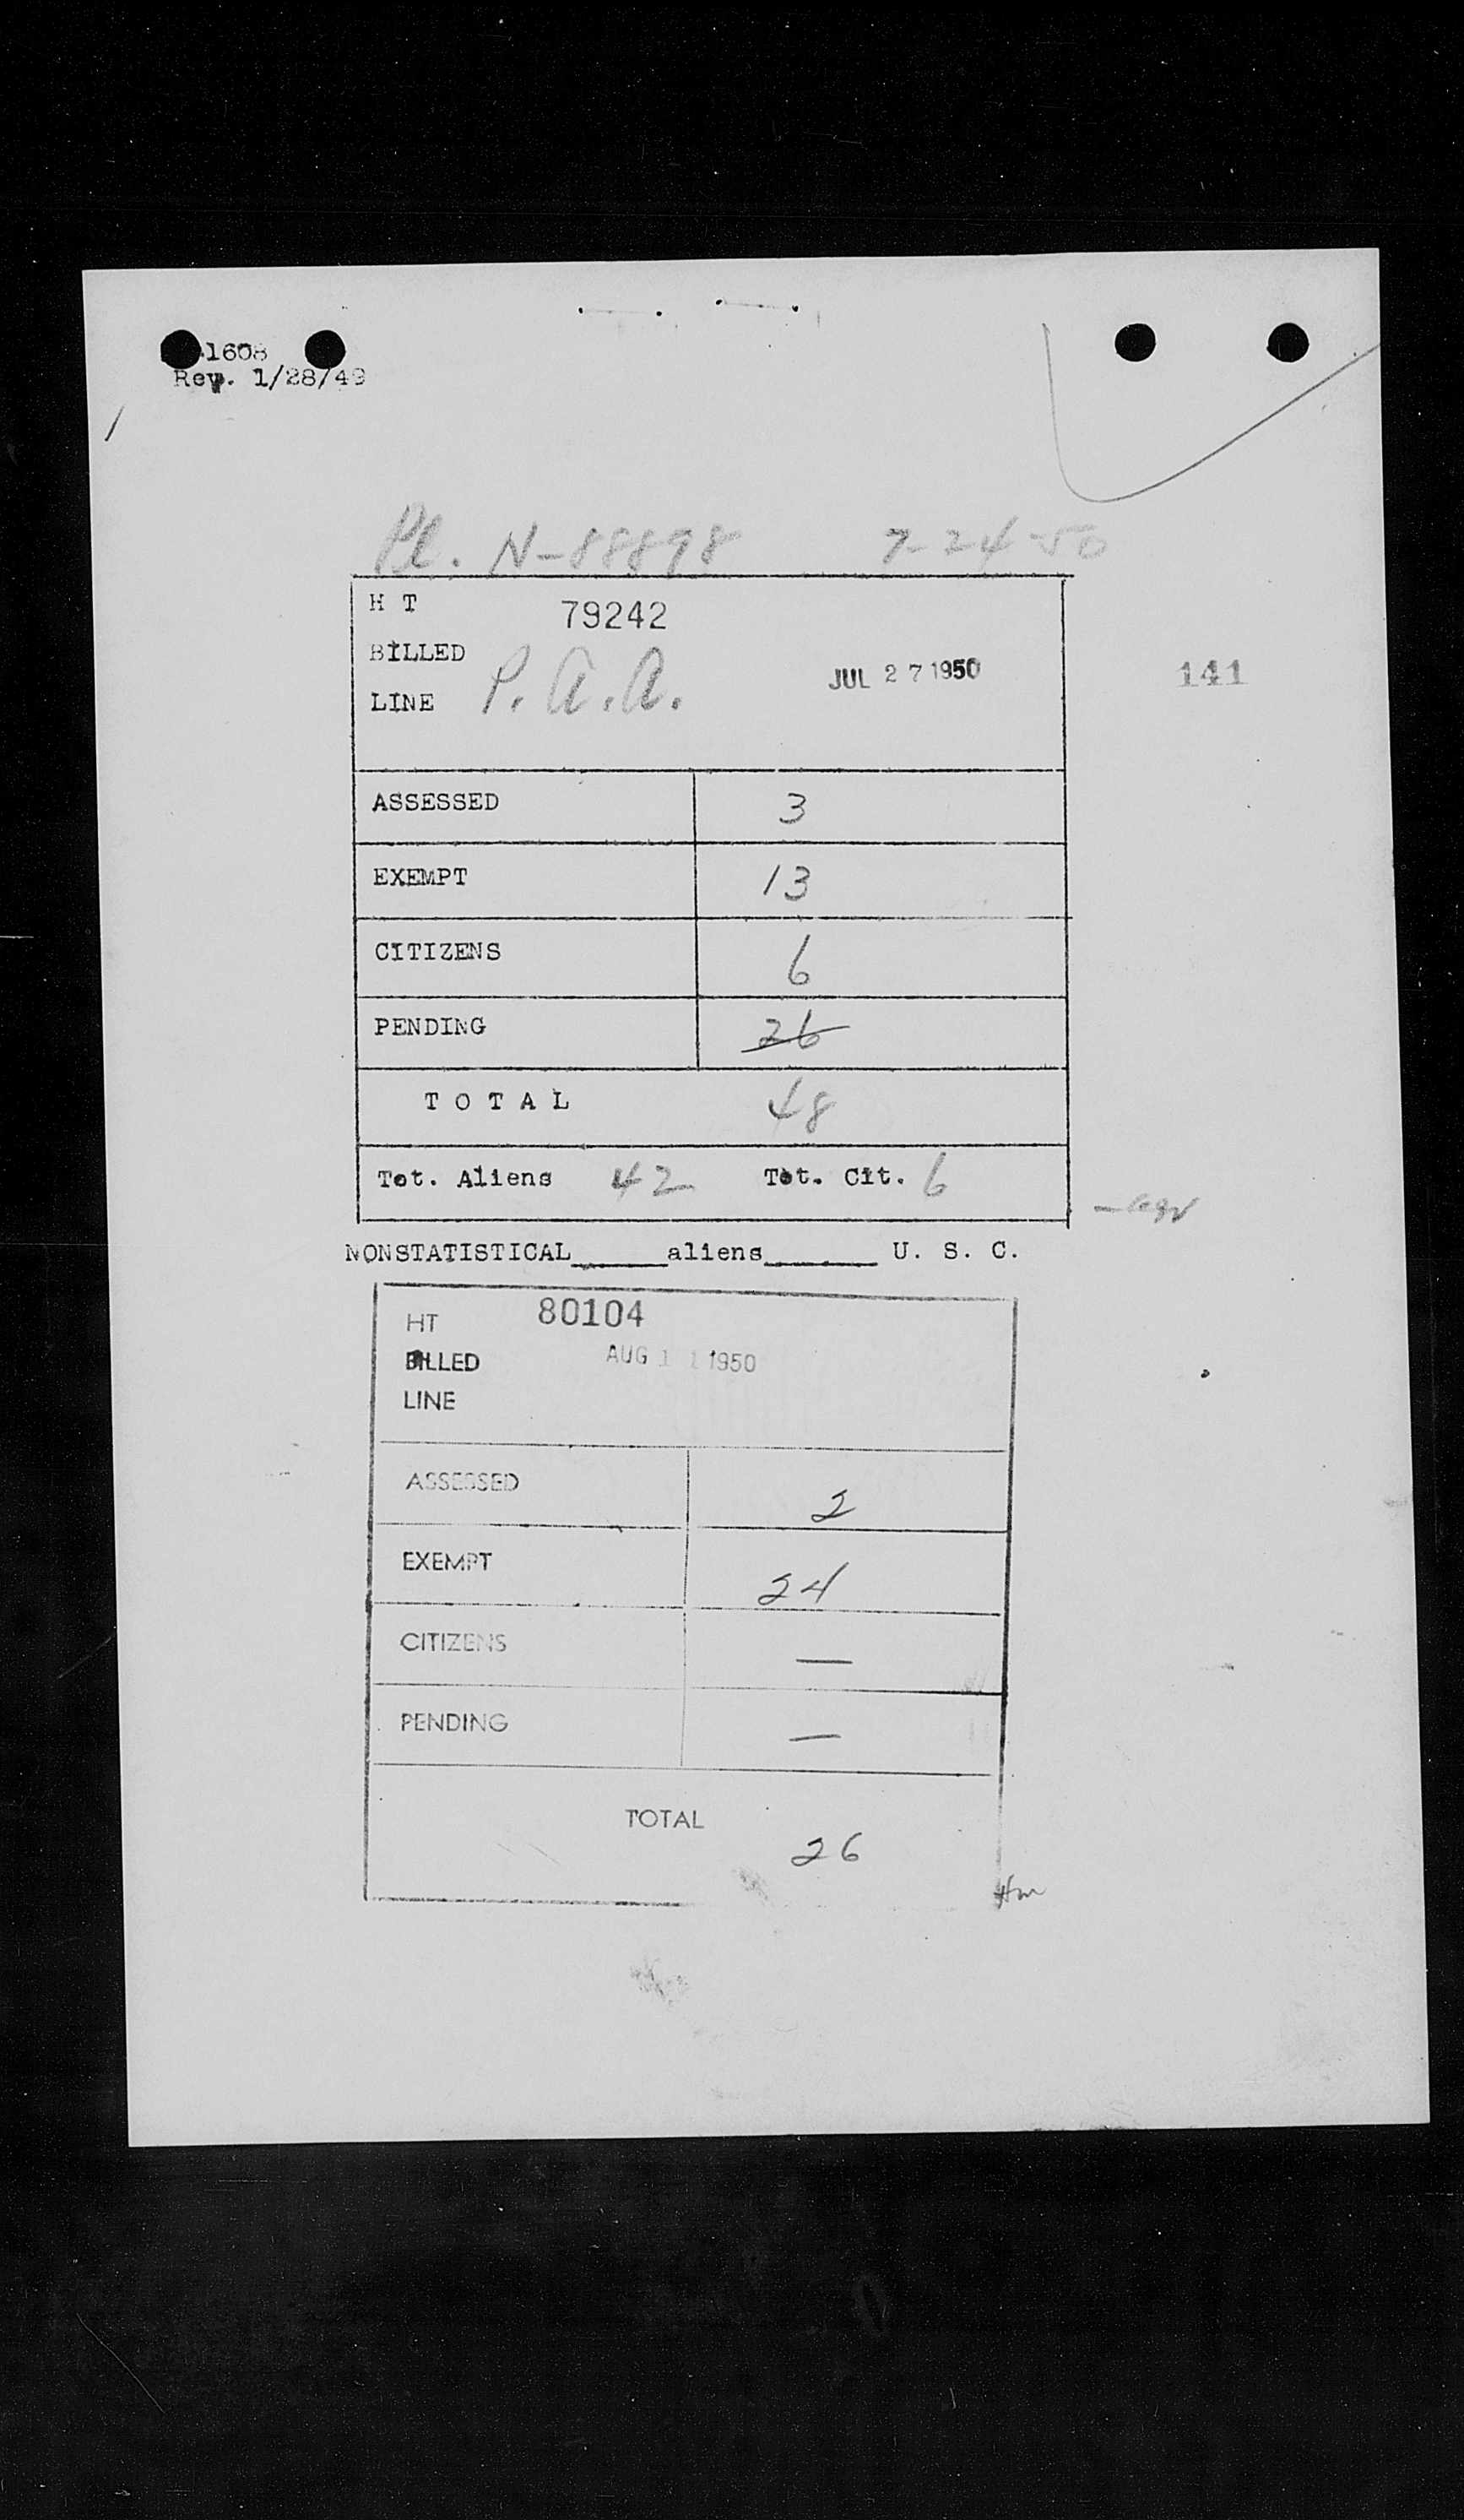 1608
Rev. 1/28/49
Pl. N-88898 7-24-50
H T 79242
BILLED
LINE P.A.A. JUL 27 1950
141
ASSESSED 3
EXEMPT 13
CITIZENS 6
PENDING 26
TOTAL 48
Tot. Aliens 42 Tot. Cit. 6
NONSTATISTICAL_____aliens______ U. S. C.
HT 80104
BILLED AUG 11 1950
LINE
ASSESSED 2
EXEMPT 24
CITIZENS —
PENDING —
TOTAL
26